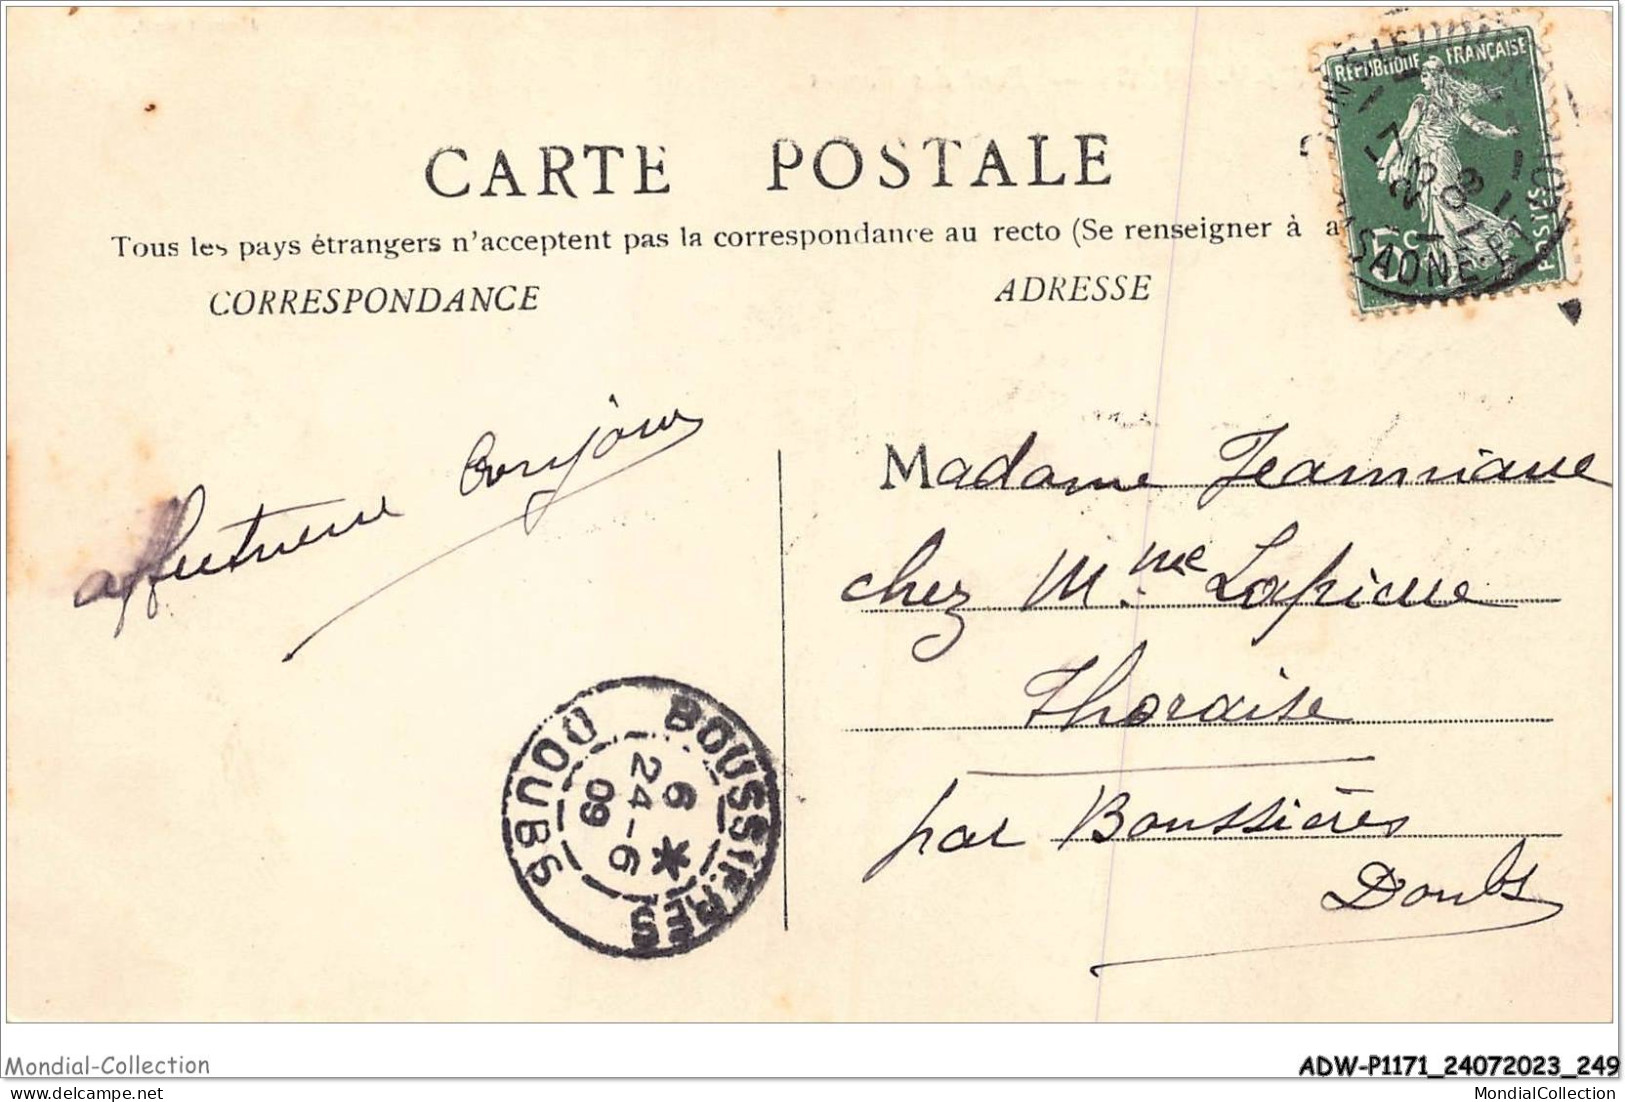 RÉPUBLIQUE FRANÇAISE
POSTES
SAONE
CARTE POSTALE
Tous les pays étrangers n'acceptent pas la correspondance au recto (Se renseigner à
CORRESPONDANCE
ADRESSE
affectueux bonjour
Madame Jeanniaue
chez Mme Lapicue
Thoraise
par Boussières
Doubs
BOUSSIERES
DOUBS
6
24-6
09
Mondial-Collection
ADW-P1171_24072023_249
MondialCollection